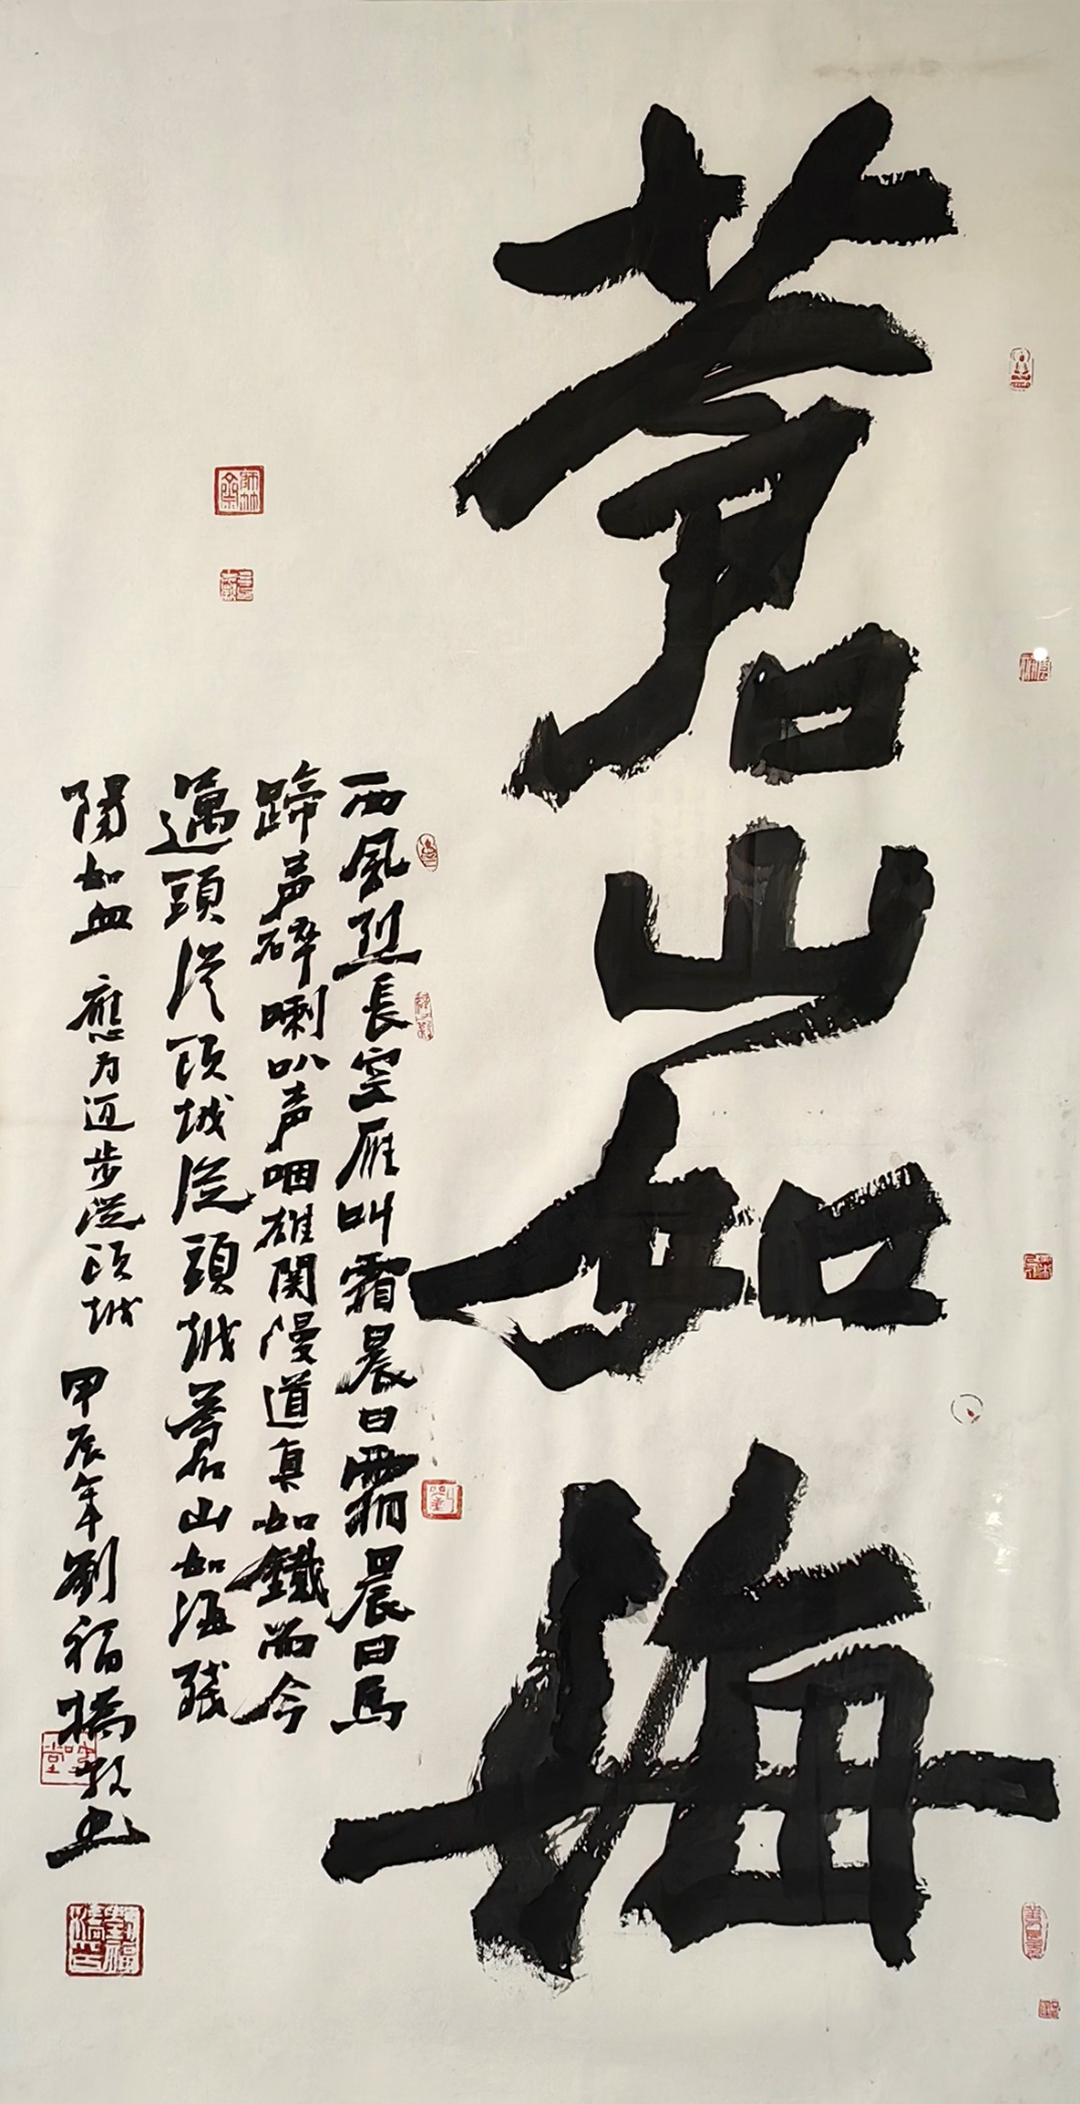 蒼山如海
西風烈長空雁叫霜晨月霜晨月馬
蹄声碎喇叭声咽雄関漫道真如鐵而今
邁頭從頭越從頭越蒼山如海殘
陽如血 應为迈步從頭越 甲辰年劉福橋敬书